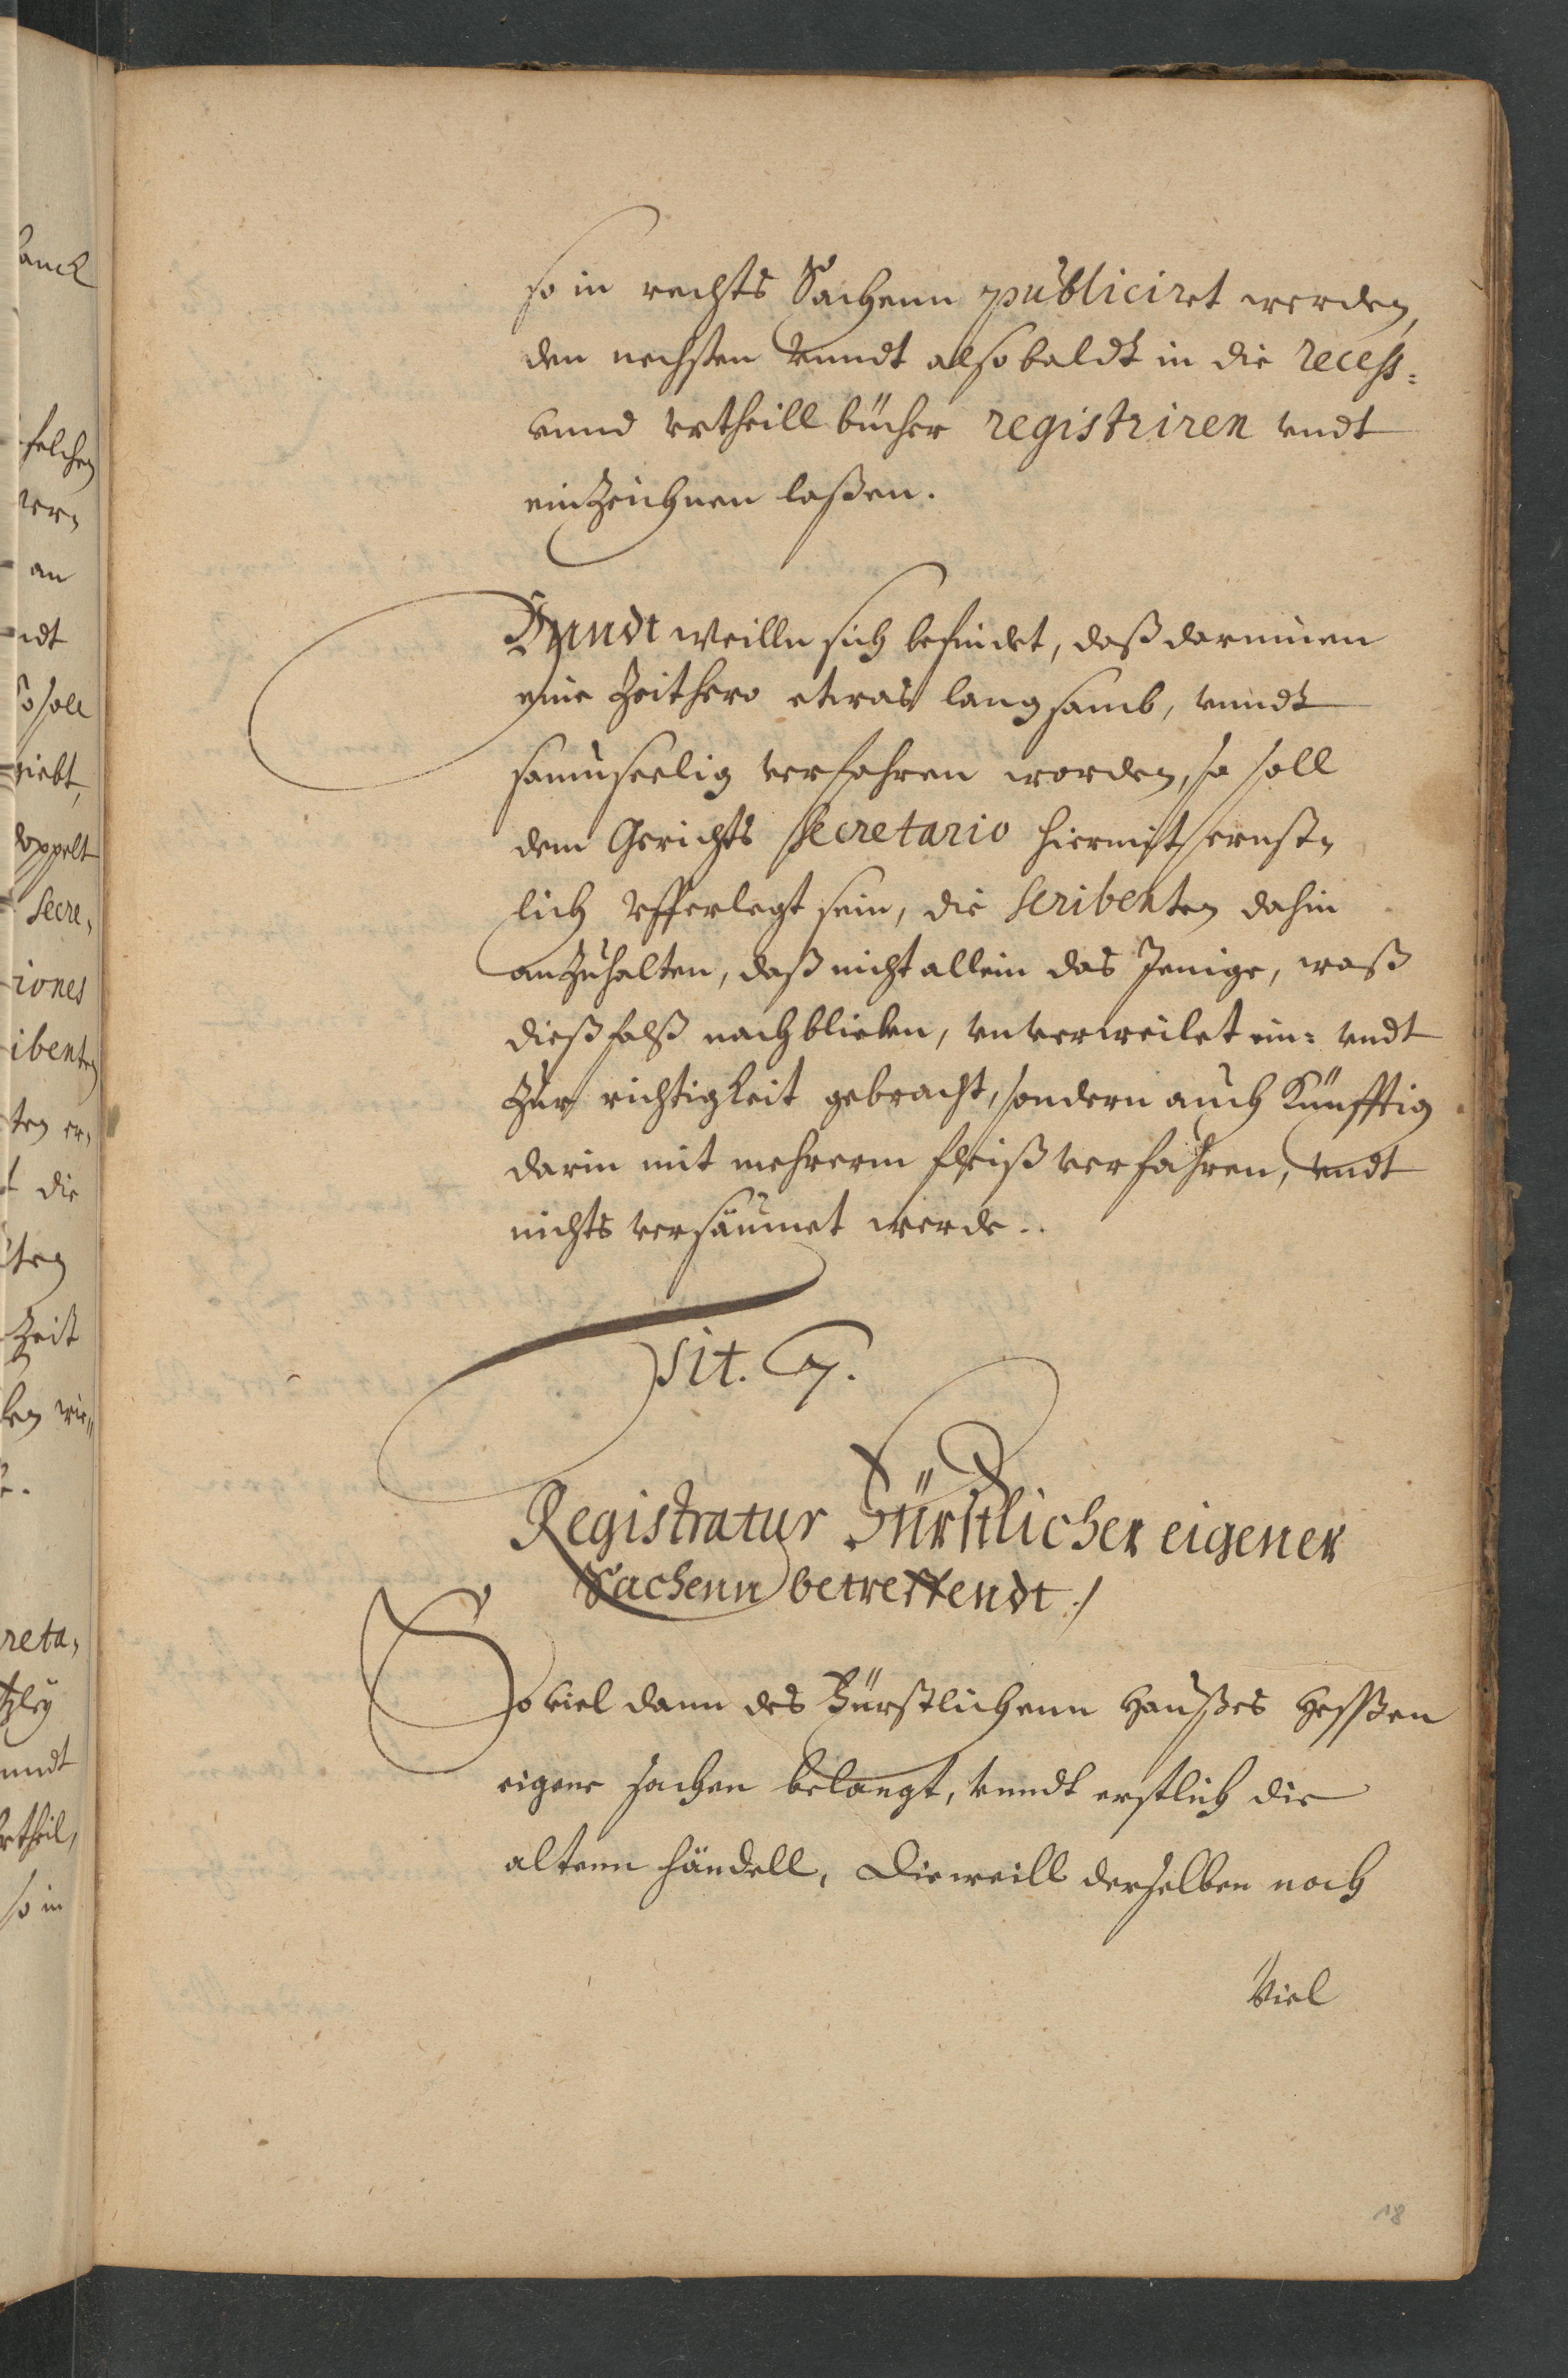 so in rechts Sachenn publiciret werden,
den nechsten vnndt alsobaldt in die recess=
vnnd vrtheill bücher registriren vndt
einzeichnen laßen.
Vnndt weilln sich befindet, daß darinnen
eine Zeithero etwas langsamb, vnndt
saumseelig verfahren worden, so soll
dem Gerichts Secretario hiermit ernst,
lich vfferlegt sein, die Scribenten dahin
anzuhalten, daß nicht allein das Jenige, waß
dießfalß nachblieben, vnverweilet ein= vndt
zur richtigkeit gebracht, sondern auch Künfftig
darin mit mehrerm fleiß verfahren, vndt
nichts versäumet werde..
Tit. 7.
Registratur Fürstlicher eigener
Sachenn betreffendt./
So viel dann des Fürstlichenn Haußes Heßen
eigene sachen belangt, vnndt erstlich die
altenn händell, Dieweill derselben noch
Viel
18
anck
solchen
an
ndt
so soll
riebt,
doppelt
Secre,
iones
ibenten
ten er,
die
Zeit
reta,
tzley
nndt
rtheil,
so in